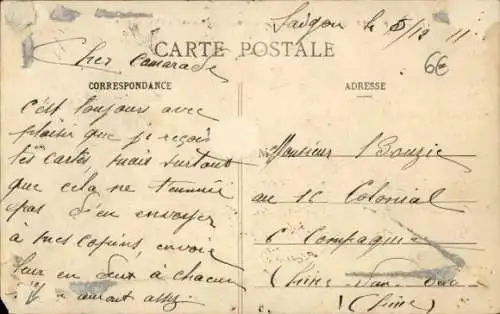 Saïgon le 5/12 11
CARTE POSTALE
6€
Cher Camarade
CORRESPONDANCE
ADRESSE
c'est toujours avec
plaisir que je reçois
tes cartes, mais surtout
que cela ne t'ennuie
pas d'en envoyer
à mes copins, envoie
leur en deux à chacun
auront assez
Monsieur Bouzie
au 1c Colonial
6e Compagnie
Chine
(Chine)